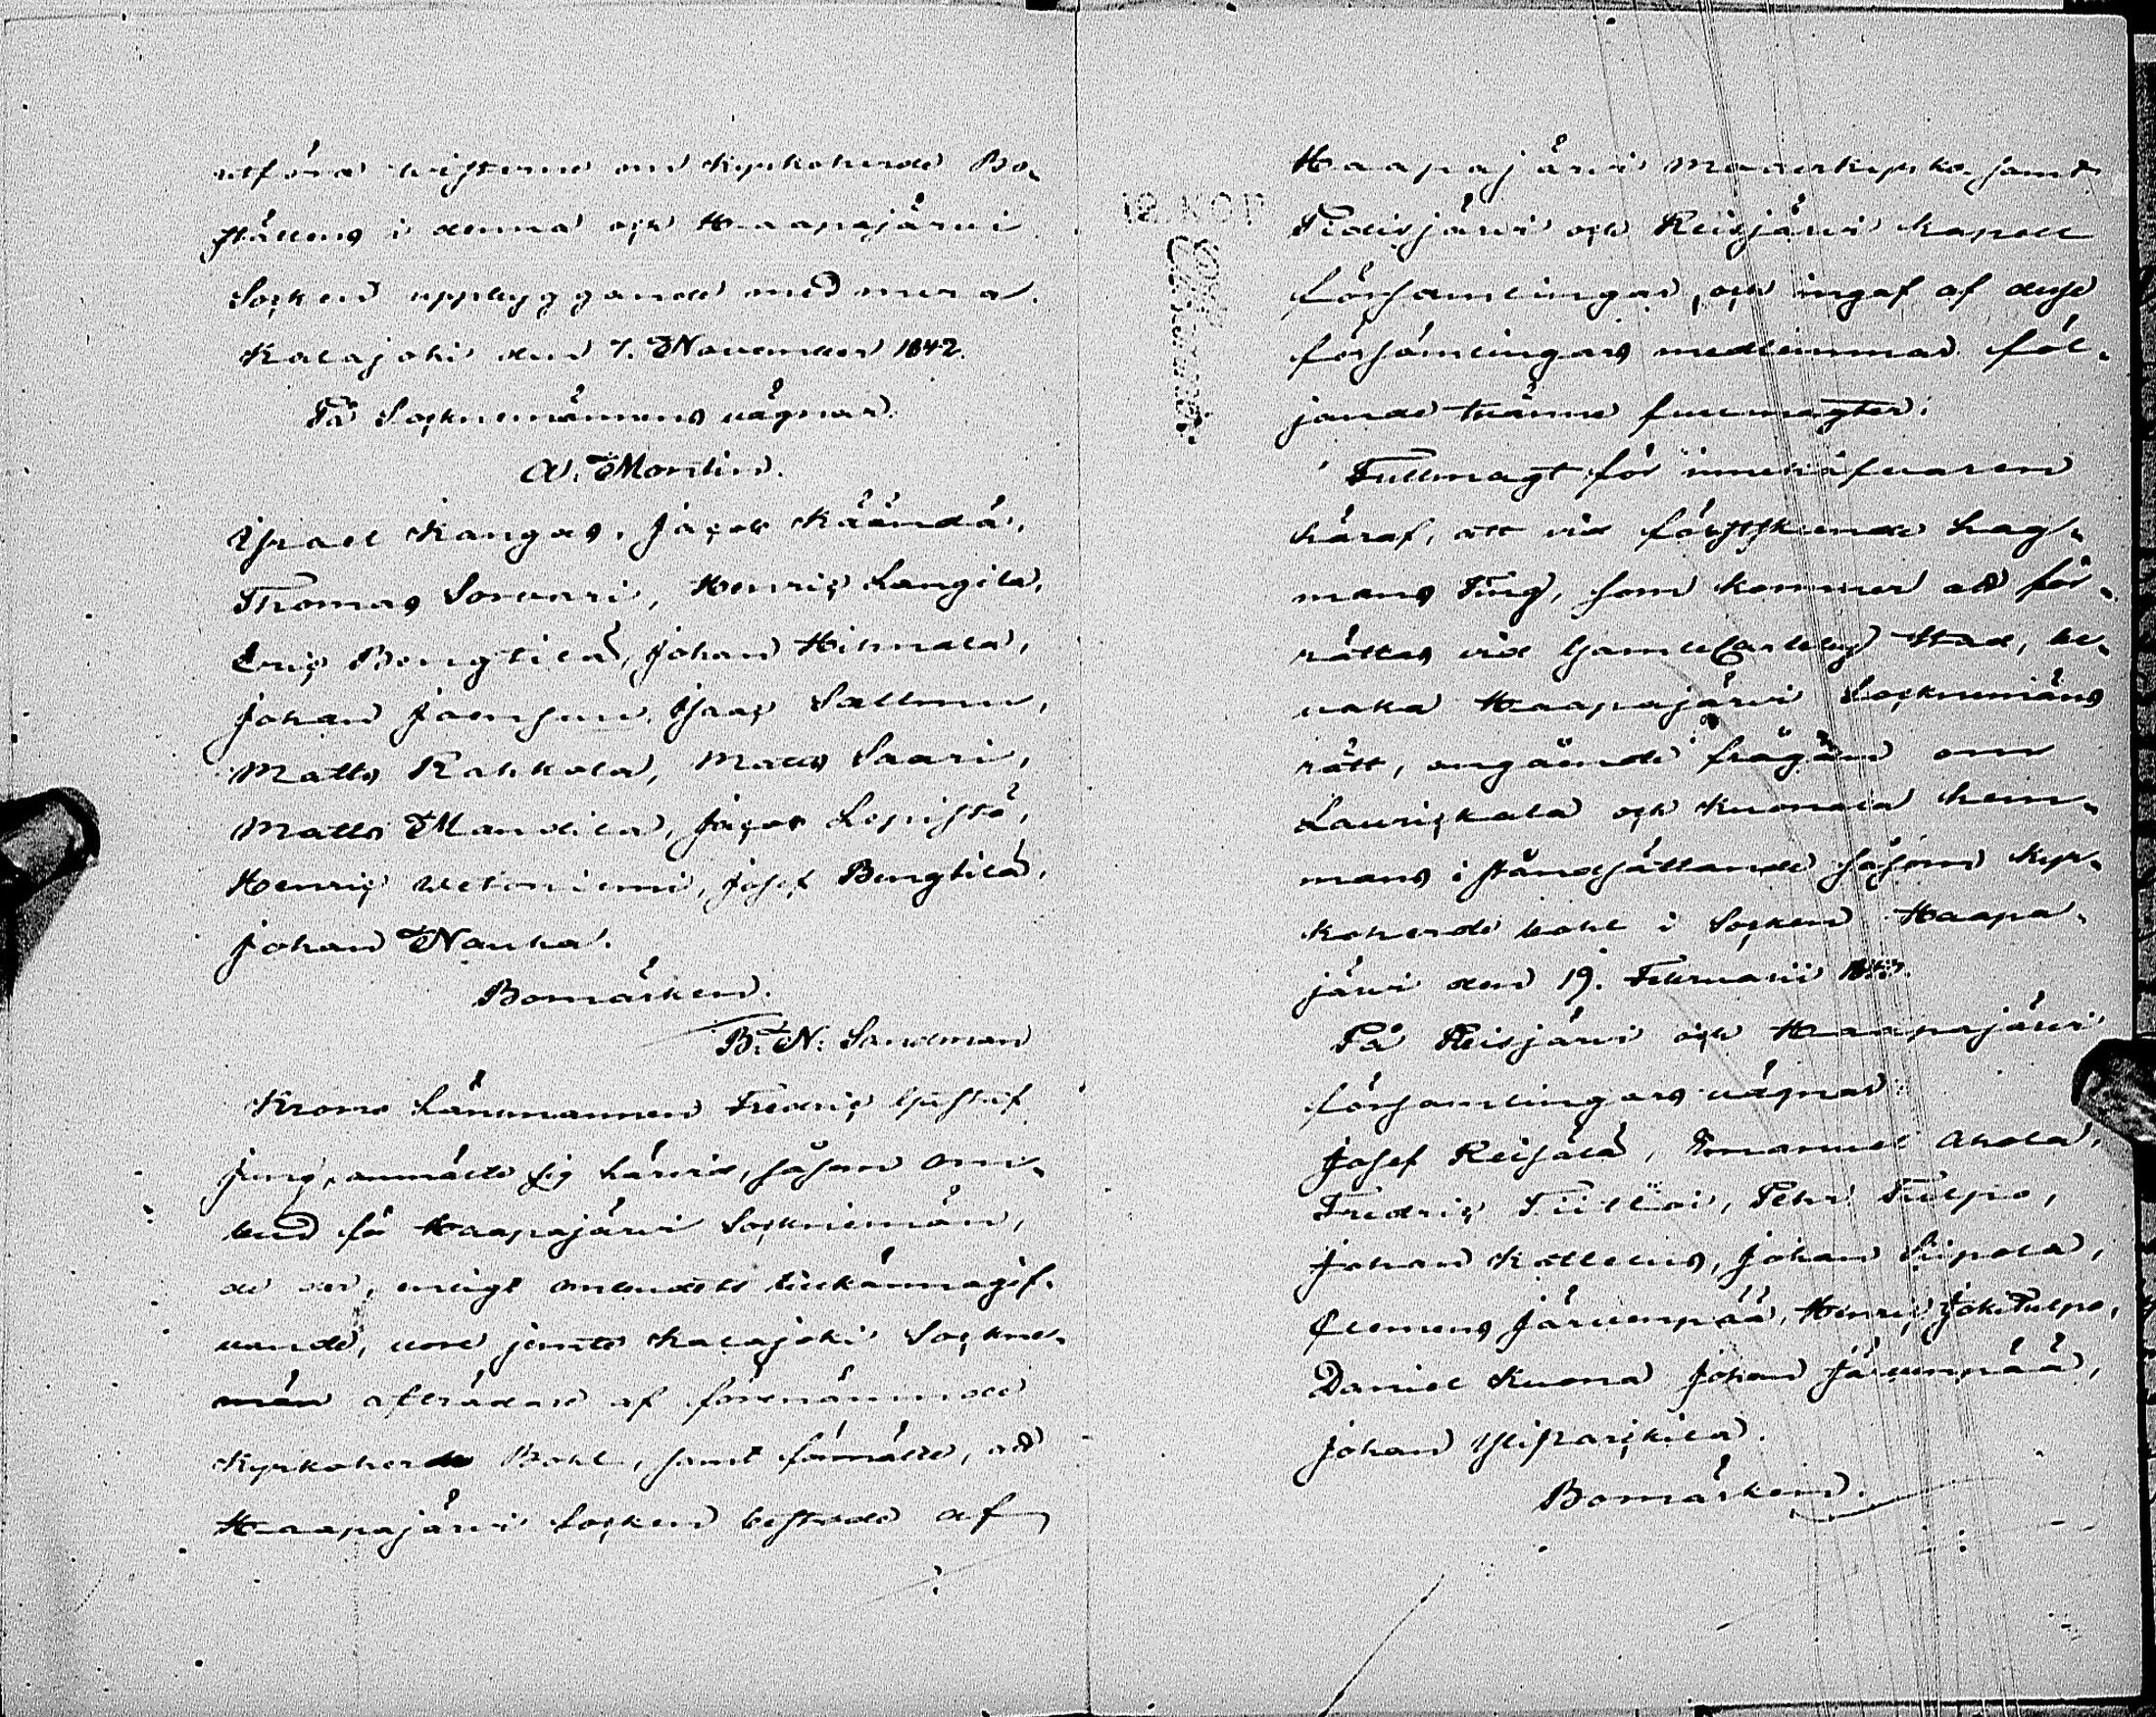 utföra twisterne om Kyrkoherde Bo-
ställens i denna och Haapajärvi
Socken uppbyggande med mera.
Kalajoki den 7. November 1842.
På Socknemännens vägnar.
A. Montin.
Israel Kangas, Jacob Käändä,
Thomas Sorvari, Henric Langila,
Eric Bengtilä, Johan Hihnala,
Johan Isac Sallinen,
Matts Rahkola, Matts Saari,
Matts Mandila, Jacob Lepistö,
Henric Josef Bengtilä,
Johan Nauha.
Bomärken.
B. N. Sandman
Krono Länsmannen Fredric Gustaf
Jung, anmälte sig härvid, såsom Om-
bud för Haapajärvi Socknemän,
de der, enligt ombudets tillkännagif-
vande, vore jemte Kalajoki Sockne-
män af förenämnde
Kyrkoherde Bohl, samt förmälte, att
Haapajärvi Socken bestode af
12. KOP
Haapajärvi Moderkyrko samt
Pidisjärvi och Reisjärvi Kapell
Församlingar, och ingaf af desse
församlingars medlemmar föl-
jande tvänne fullmagter:
Fullmagt för innehafvaren
häraf, att vid förstskeende Lag-
mans Ting, som kommer att för-
rättas vid GamleCarleby Stad, be-
vaka Haapajärvi Socknemäns
rätt, angående frågan om
Laurickala och Kuonala hem-
mans iståndsättande såsom Kyr-
koherde bohl i Socken Haapa-
järvi den 19. Februarii
På Reisjärvi och Haapajärvi
församlingars vägnar:
Josef Reisälä, Emanuel Ahola,
Fredric Petter Tulpo,
Johan Kallelius, Johan Sipola,
Clemens Järvenpää, Henric Jokitulpo,
Daniel Kuona Johan Järvenpää,
Johan Ylipaickila.
Bomärken.